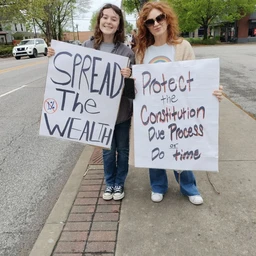 SPREAD
The
WEALTH
Protect
the
Constitution
Due Process
or
Do time